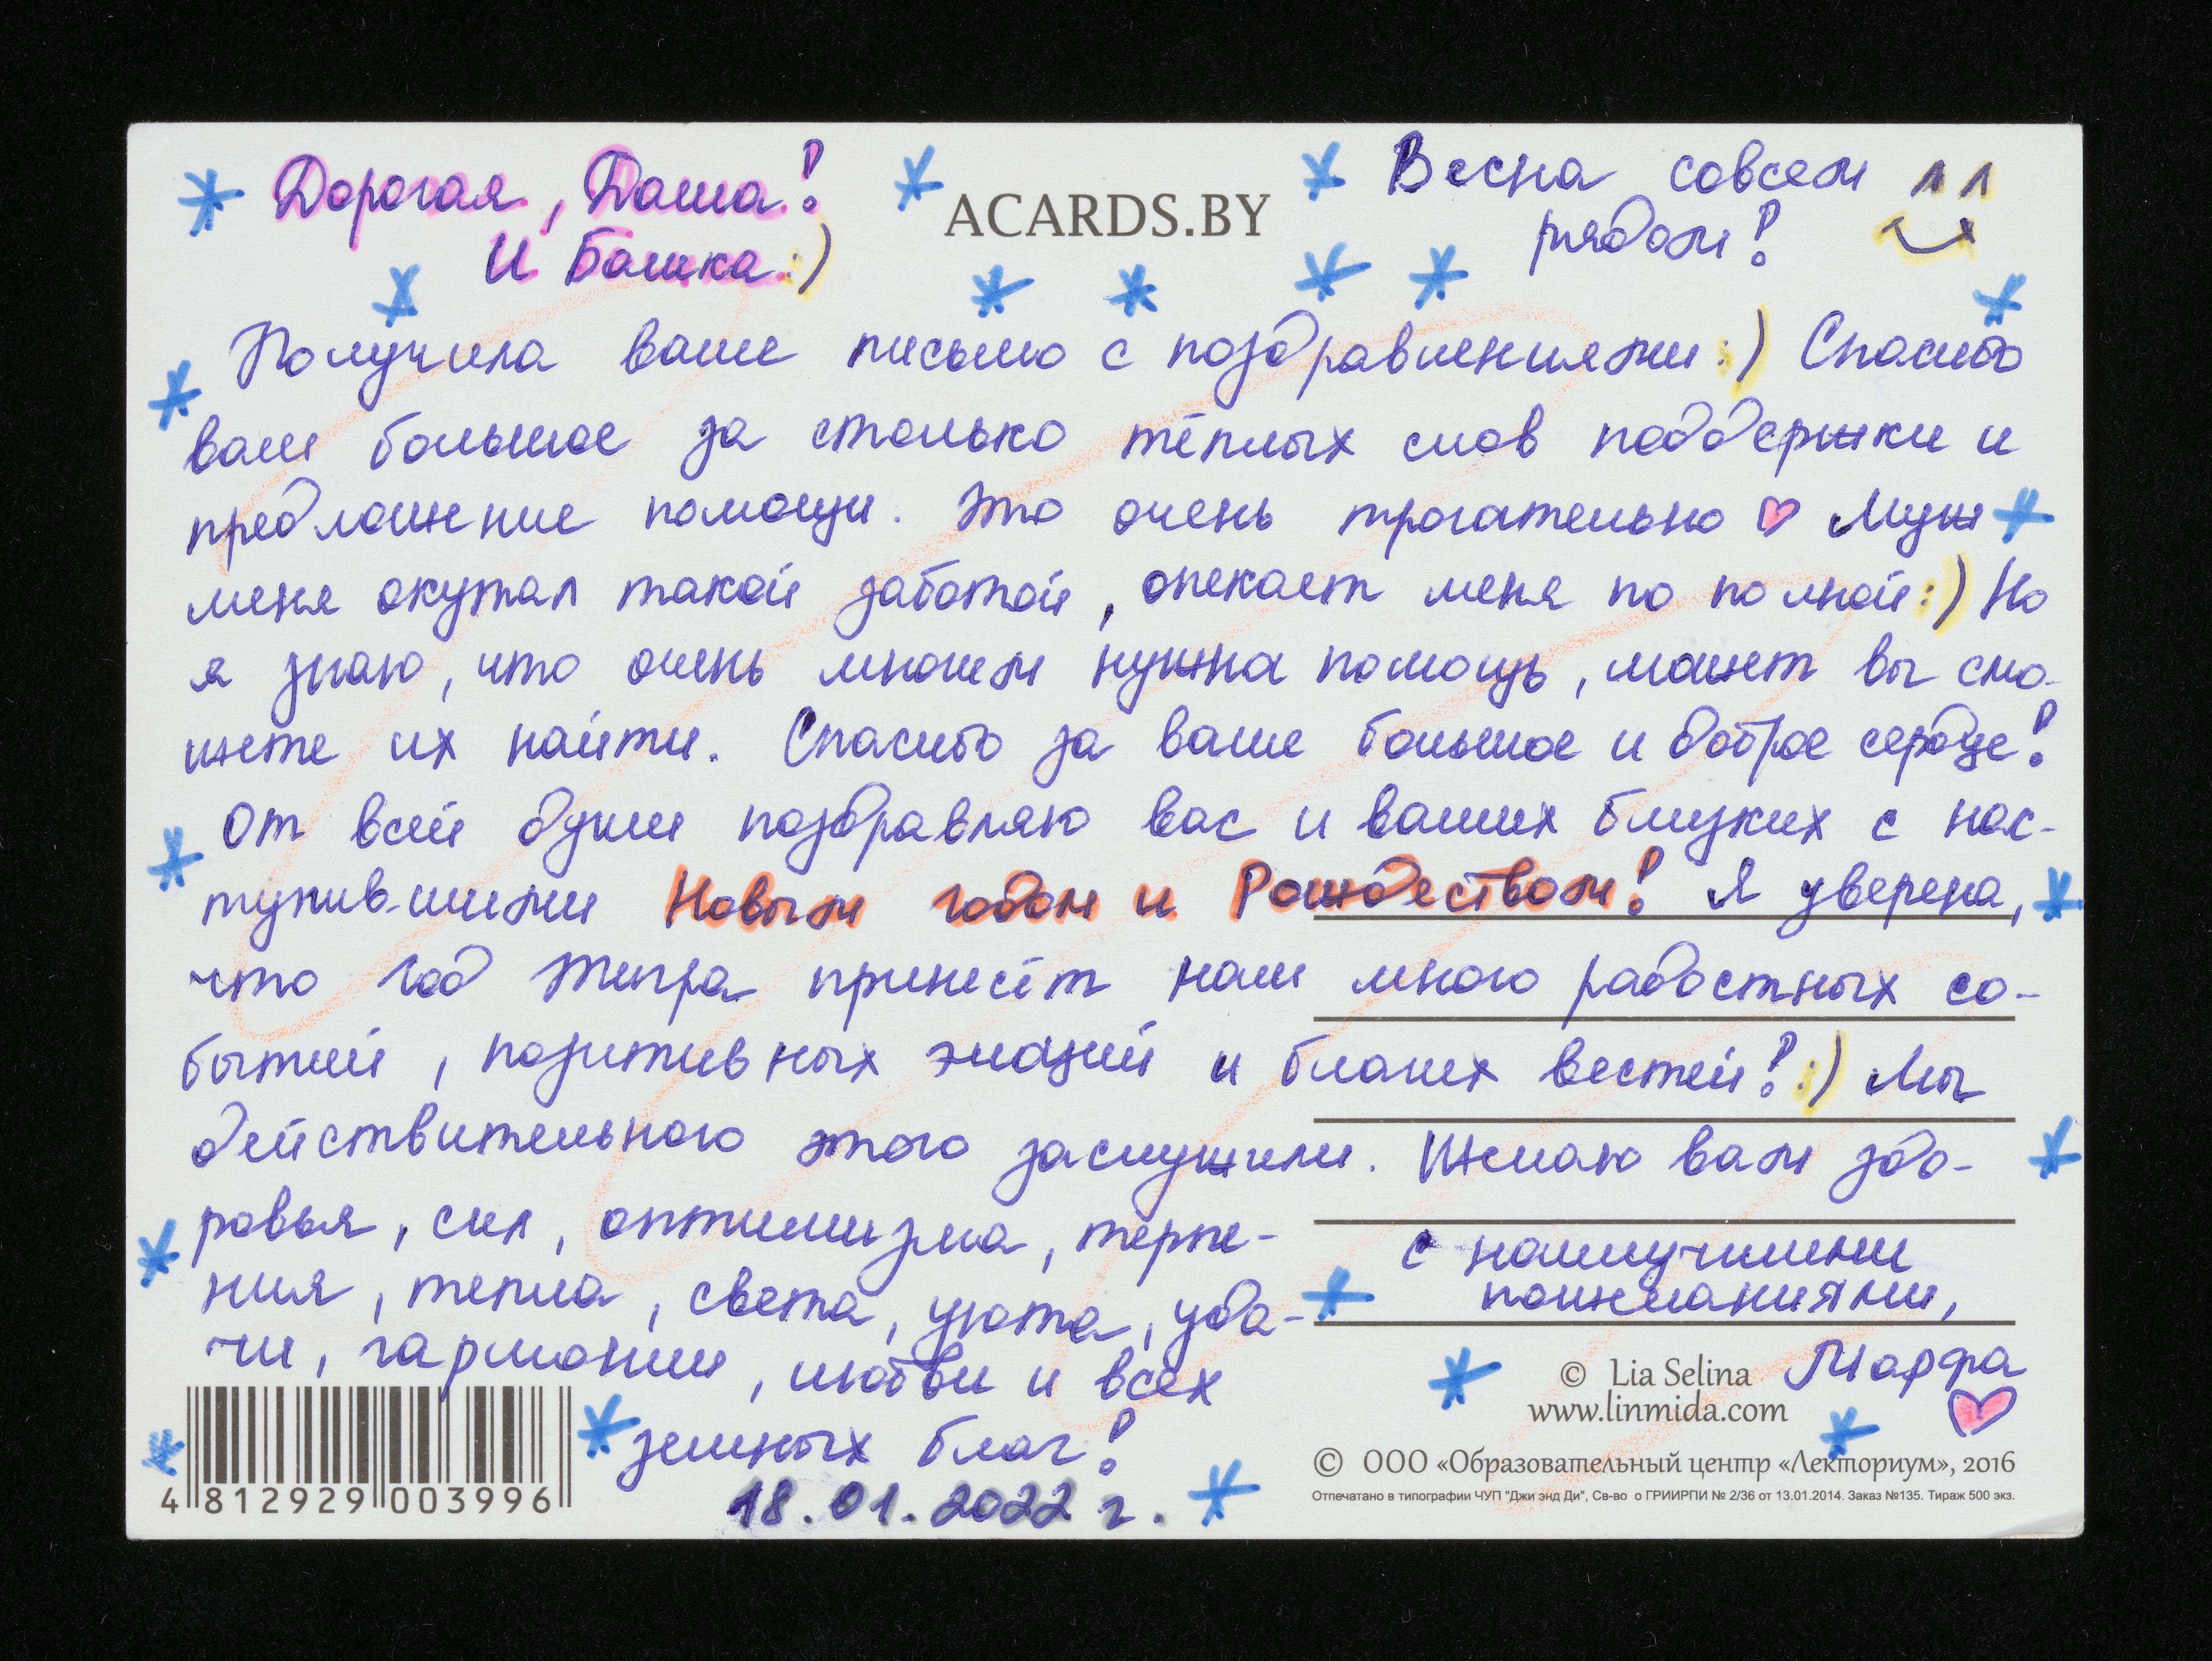 Дорогая, Даша!
И Башка :)
ACARDS.BY
Весна совсем
рядом!
Получила ваше письмо с поздравлениями :) Спасибо
вам большое за столько тёплых слов поддержки и
предложение помощи. Это очень трогательно ♡ Муж
меня окутал такой заботой, опекает меня по полной :) Но
я знаю, что очень многим нужна помощь, может вы смо-
жете их найти. Спасибо за ваше большое и доброе сердце!
От всей души поздравляю вас и ваших близких с нас-
тупившими Новым годом и Рождеством! Я уверена,
что год Тигра принесёт нам много радостных со-
бытий, позитивных эмоций и благих вестей! :) Мы
действительного этого заслужили. Желаю вам здо-
ровья, сил, оптимизма, терпе-
ния, тепла, света, уюта, уда-
чи, гармонии, любви и всех
земных благ!
18.01.2022 г.
с наилучшими
пожеланиями,
Марфа
© Lia Selina
www.linmida.com
© ООО «Образовательный центр «Лекториум», 2016
Отпечатано в типографии ЧУП "Джи энд Ди", Св-во о ГРИИРПИ № 2/36 от 13.01.2014. Заказ №135. Тираж 500 экз.
4 812929 003996